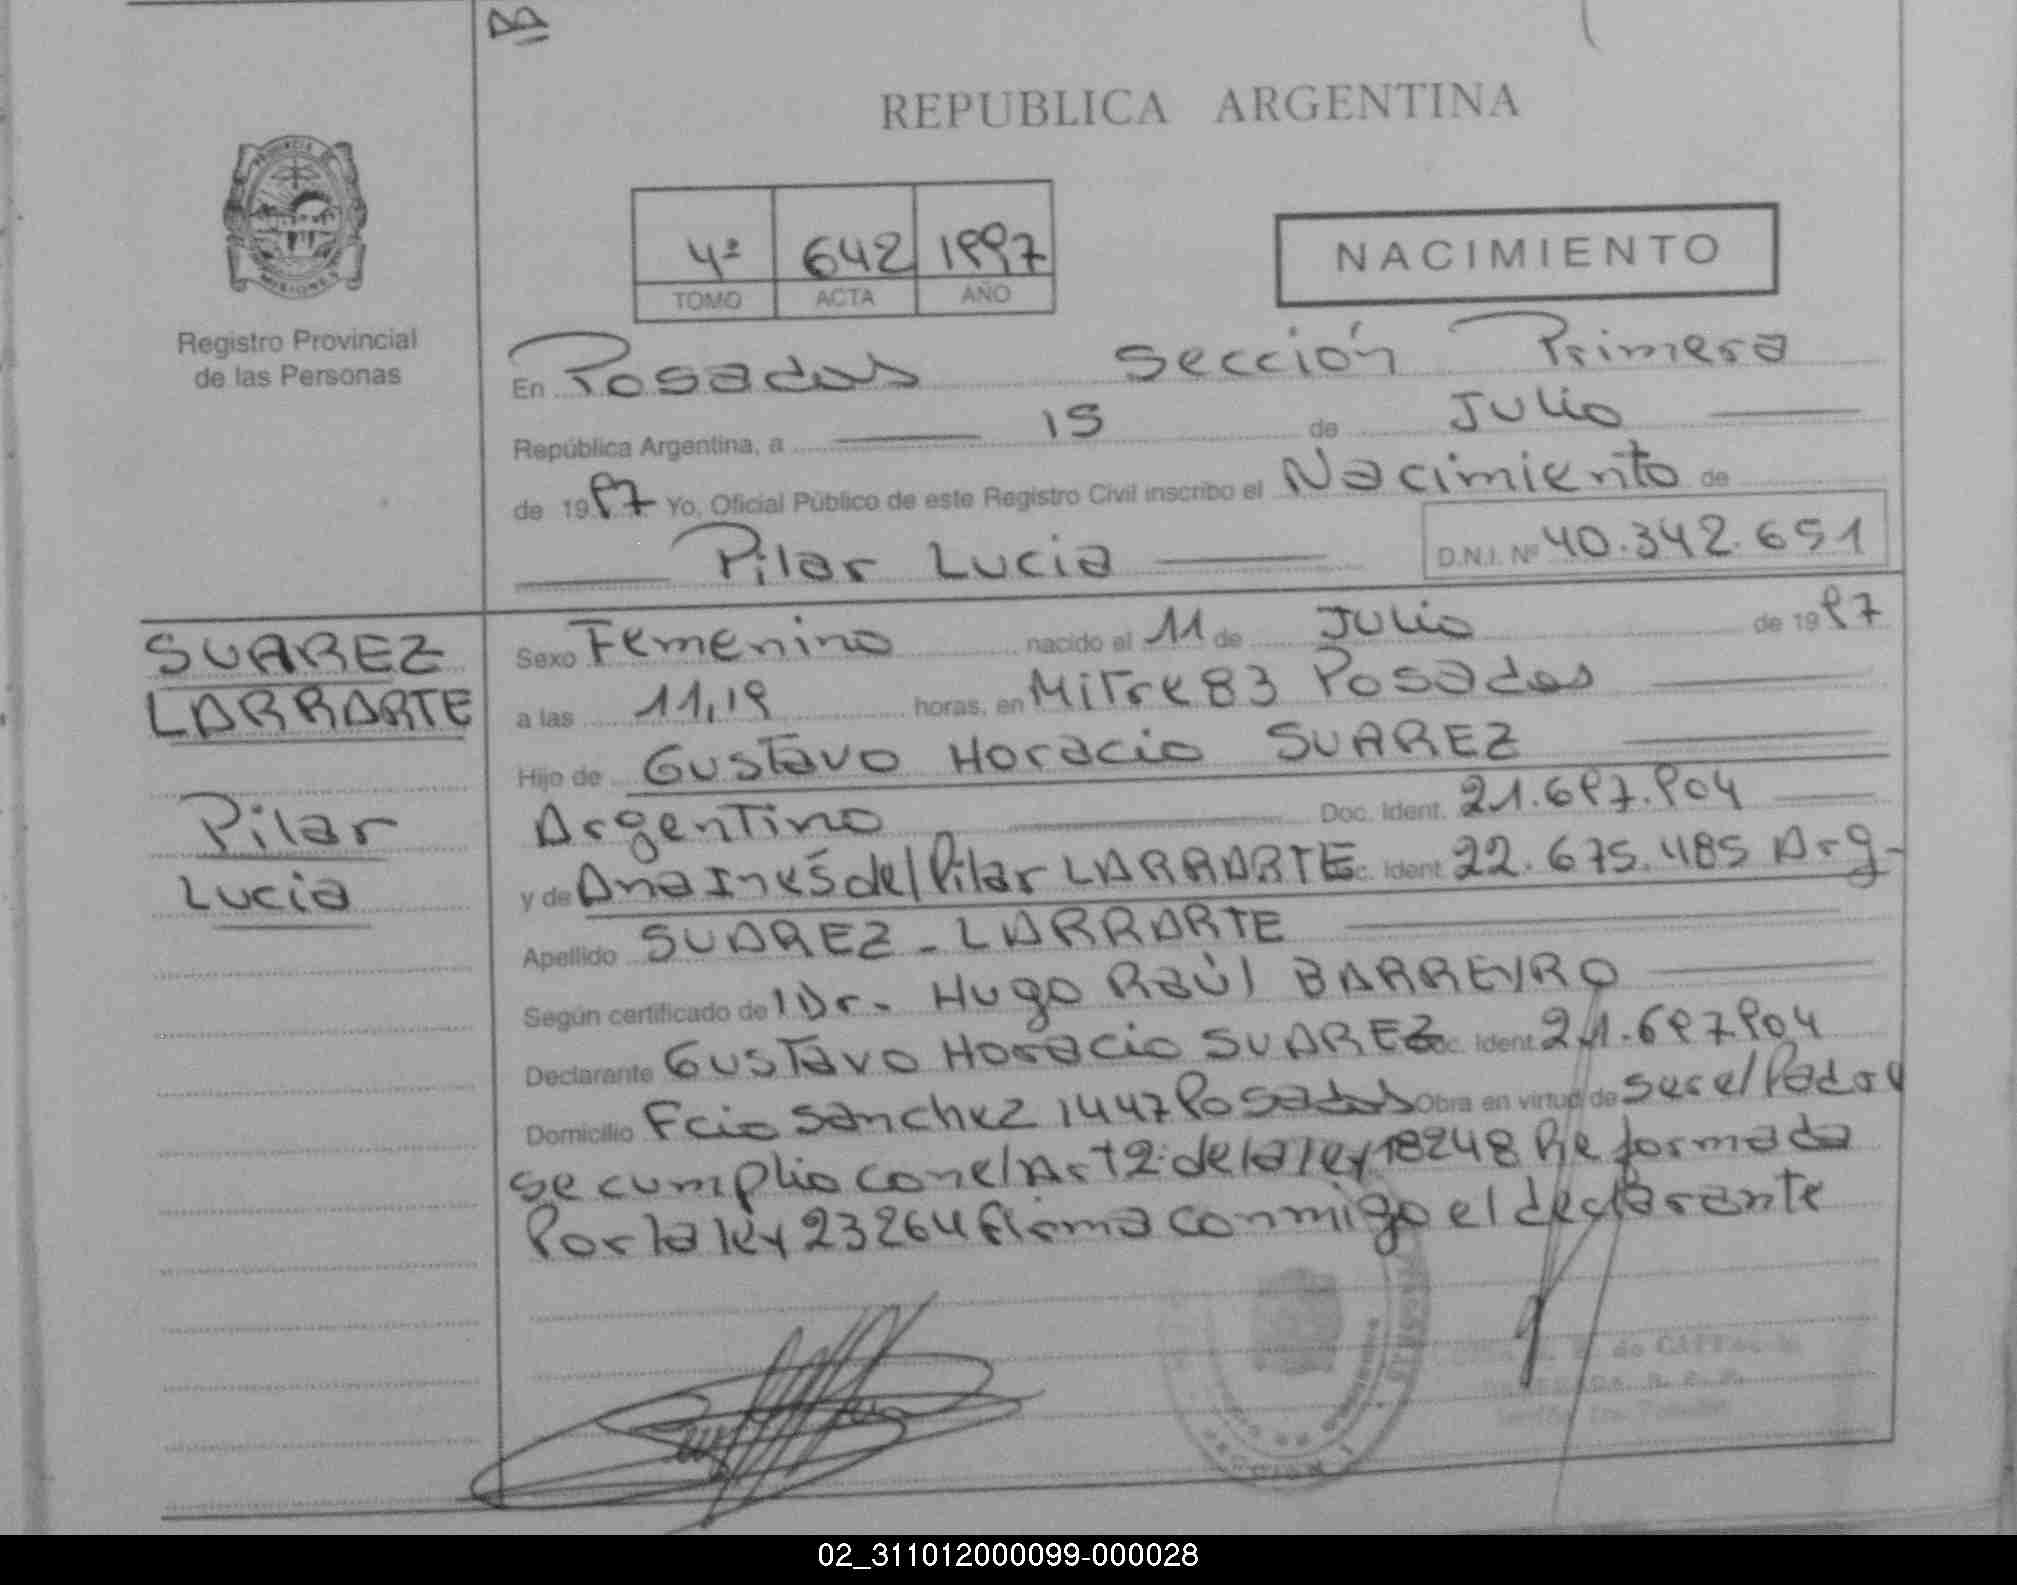 REPUBLICA ARGENTINA
4º 642 1997
TOMO ACTA AÑO
NACIMIENTO
Registro Provincial
de las Personas
En Posadas Sección Primera
República Argentina, a 15 de Julio
de 1997 Yo, Oficial Público de este Registro Civil inscribo el Nacimiento de
Pilar Lucia D.N.I. Nº 40.342.651
SUAREZ
LARRARTE
Pilar
Lucia
Sexo Femenino nacido el 11 de Julio de 1997
a las 11,19 horas, en Mitre 83 Posadas
Hijo de Gustavo Horacio SUAREZ
Argentino Doc. Ident. 21.697.904
y de Ana Inés del Pilar LARRARTE c. Ident 22.675.485 Arg-
Apellido SUAREZ - LARRARTE
Según certificado del Dr. Hugo Raúl BARREYRO
Declarante Gustavo Horacio SUAREZ oc. Ident 21.697904
Domicilio Fcio Sanchez 1447 Posadas Obra en virtud de ser el Padre
se cumplio con el Art 2: de la ley 18248 Reformada
Por la ley 23264 firma conmigo el declarante
02_311012000099-000028